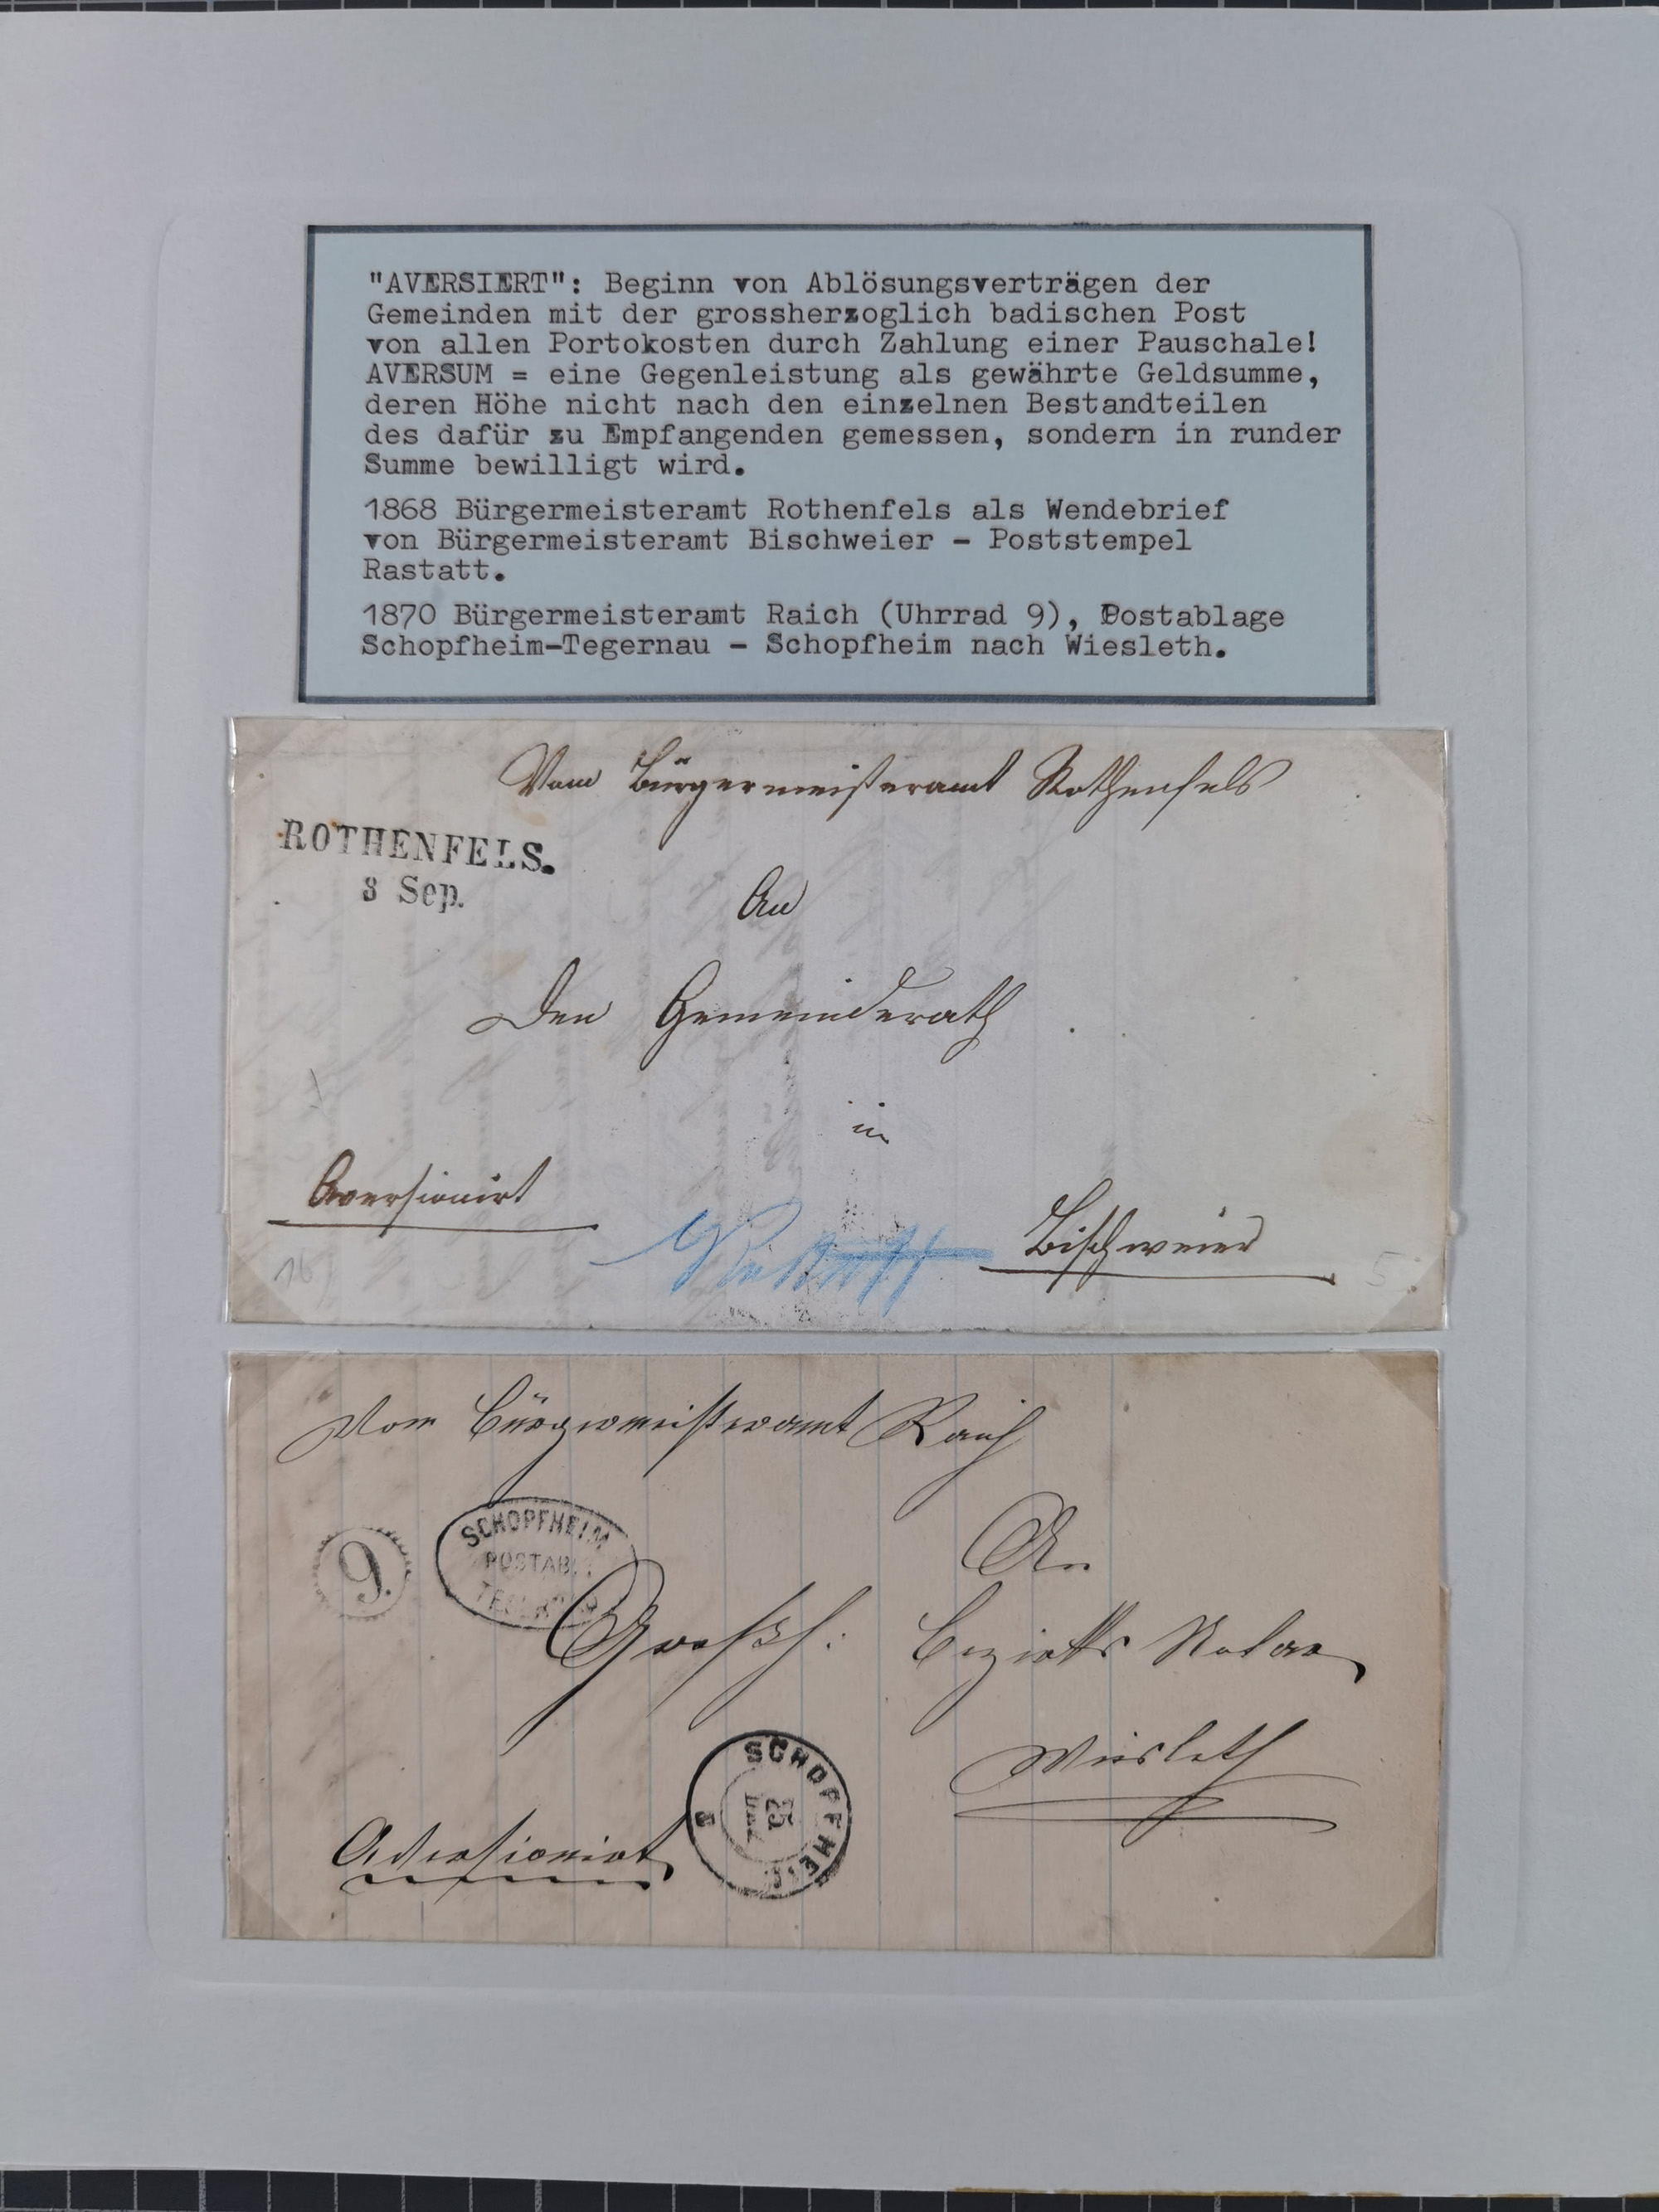 "AVERSIERT": Beginn von Ablösungsverträgen der
Gemeinden mit der grossherzoglich badischen Post
von allen Portokosten durch Zahlung einer Pauschale!
AVERSUM = eine Gegenleistung als gewährte Geldsumme,
deren Höhe nicht nach den einzelnen Bestandteilen
des dafür zu Empfangenden gemessen, sondern in runder
Summe bewilligt wird.
1868 Bürgermeisteramt Rothenfels als Wendebrief
von Bürgermeisteramt Bischweier – Poststempel
Rastatt.
1870 Bürgermeisteramt Raich (Uhrrad 9), Postablage
Schopfheim-Tegernau – Schopfheim nach Wiesleth.
Vom Bürgermeisteramt Rothenfels
ROTHENFELS.
8 Sep.
An
den Gemeinderath
in
Aversionirt
Rastatt
Bischweier
16
5
Vom Bürgermeisteramt Raich
9.
SCHOPFHEIM
POSTABL.
An
Großh: Bezirks Notar
Wiesleth
SCHOPFHEIM
25
Aversionirt